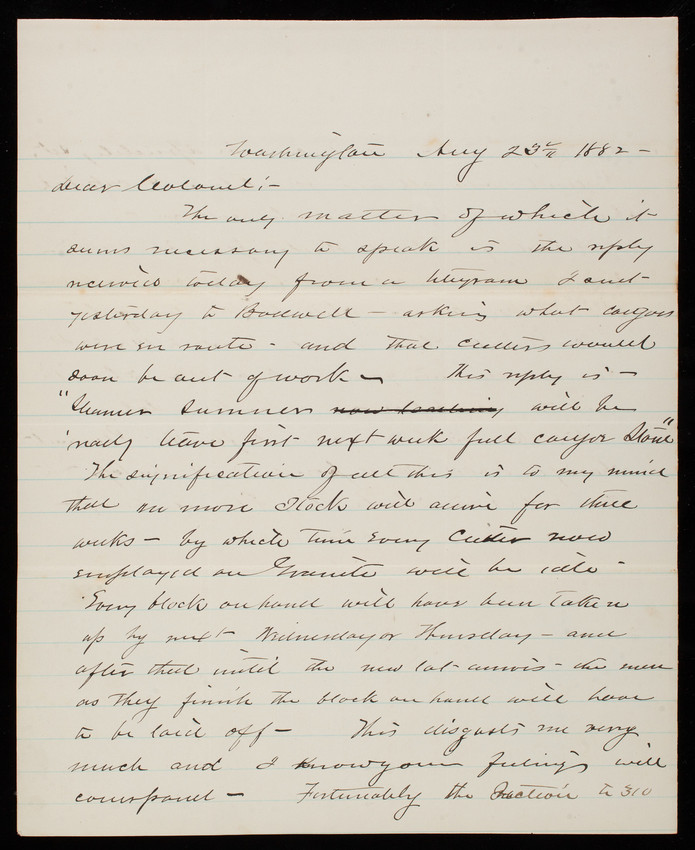 Washington Aug 23rd 1882 -
Dear Colonel; -
The only matter of which it
seems necessary to speak is the reply
received today from a telegram I sent
yesterday to Bodwell - asking what cargoes
were en route - and that cutters would
soon be out of work - This reply is -
"Steamer Summers now loading will be
ready leave first next week full cargo Stone"
The signification of all this is to my mind
that no more Stock will arrive for three
weeks - by which time every Cutter now
employed on Granite will be idle -
Every block on hand will have been taken
up by next Wednesday or Thursday - and
after that until the new lot arrives - the men
as they finish the block on hand will have
to be laid off - This disgusts me very
much and I know your feelings will
correspond - Fortunately the to 310